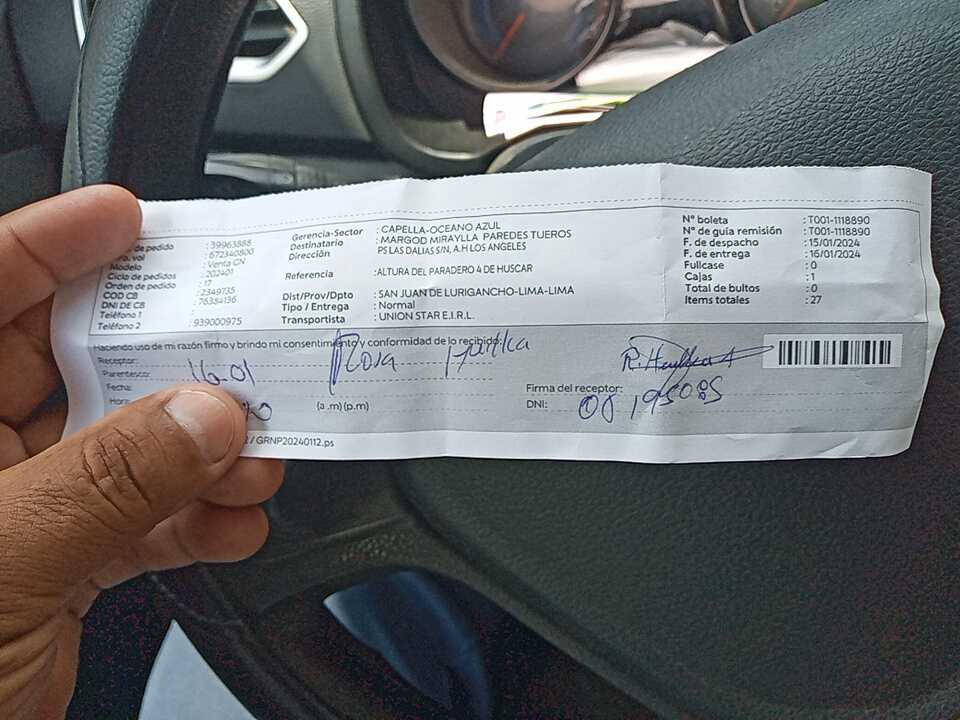 de pedido : 39963888
vol : 672340800
Modelo : Venta CN
Ciclo de pedidos : 202401
Orden de pedido : 17
COD CB : 2349735
DNI DE CB : 76384136
Teléfono 1 :
Teléfono 2 : 939000975
Gerencia-Sector : CAPELLA-OCEANO AZUL
Destinatario : MARGOD MIRAYLLA PAREDES TUEROS
Dirección PS LAS DALIAS S/N, A.H LOS ANGELES
Referencia : ALTURA DEL PARADERO 4 DE HUSCAR
Dist/Prov/Dpto : SAN JUAN DE LURIGANCHO-LIMA-LIMA
Tipo / Entrega : Normal
Transportista : UNION STAR E.I.R.L.
N° boleta : T001-1118890
N° de guía remisión : T001-1118890
F. de despacho : 15/01/2024
F. de entrega : 16/01/2024
Fullcase : 0
Cajas : 1
Total de bultos : 0
Items totales : 27
Haciendo uso de mi razón firmo y brindo mi consentimiento y conformidad de lo recibido:
Receptor: Rosa
Parentesco:
Fecha: 16-01
Hora: (a .m) (p.m)
Firma del receptor:
DNI: 08195085
/ GRNP20240112.ps